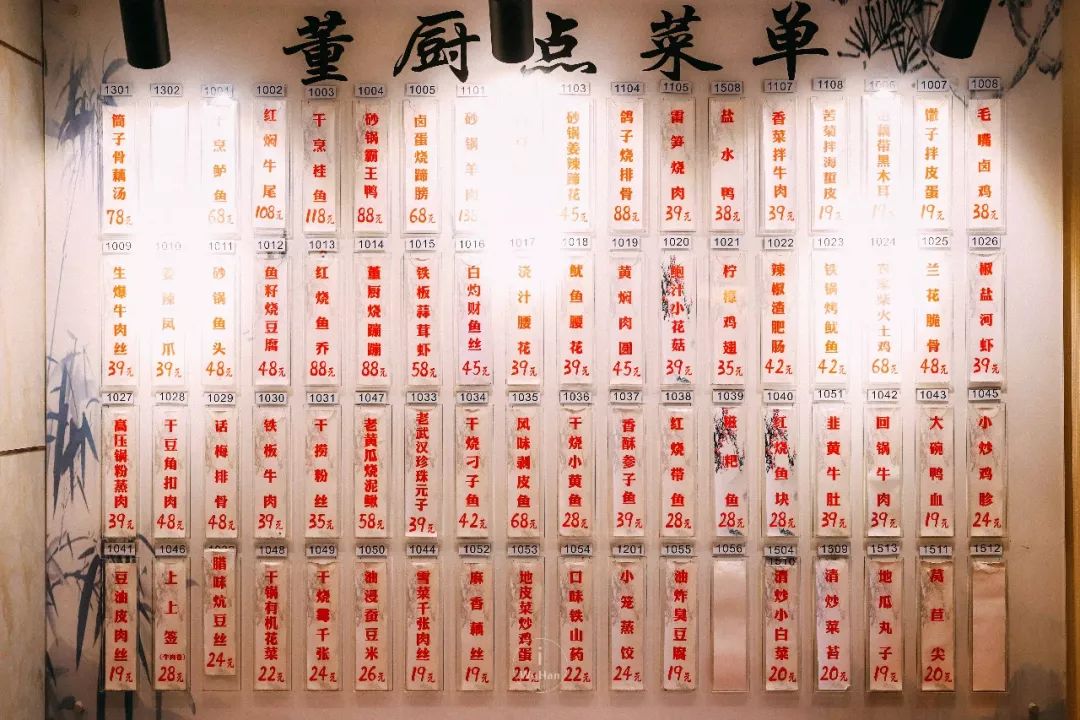 董厨点菜单
1301 1302 1001 1002 1003 1004 1005 1101 1103 1104 1105 1508 1107 1108 1006 1007 1008
筒子骨藕汤 78元
干烹鲈鱼 68元
红焖牛尾 108元
干烹桂鱼 118元
砂锅霸王鸭 88元
卤蛋烧蹄膀 68元
砂锅羊肉 138元
砂锅姜辣蹄花 45元
鸽子烧排骨 88元
雷笋烧肉 39元
盐水鸭 38元
香菜拌牛肉 39元
苦菊拌海蜇皮 19元
藕带黑木耳 19元
馓子拌皮蛋 19元
毛嘴卤鸡 38元
1009 1010 1011 1012 1013 1014 1015 1016 1017 1018 1019 1020 1021 1022 1023 1024 1025 1026
生爆牛肉丝 39元
姜辣凤爪 39元
砂锅鱼头 48元
鱼籽烧豆腐 48元
红烧鱼乔 88元
董厨烧蹦蹦 88元
铁板蒜茸虾 58元
白灼财鱼丝 45元
浇汁腰花 39元
鱿鱼腰花 39元
黄焖肉圆 45元
鲍汁小花菇 39元
柠檬鸡翅 35元
辣椒渣肥肠 42元
铁锅烤鱿鱼 42元
农家柴火土鸡 68元
兰花脆骨 48元
椒盐河虾 39元
1027 1028 1029 1030 1031 1047 1033 1034 1035 1036 1037 1038 1039 1040 1051 1042 1043 1045
高压锅粉蒸肉 39元
干豆角扣肉 48元
话梅排骨 48元
铁板牛肉 39元
干捞粉丝 35元
老黄瓜烧泥鳅 58元
老武汉珍珠元子 39元
干烧刁子鱼 42元
风味剥皮鱼 68元
干烧小黄鱼 28元
香酥参子鱼 39元
红烧带鱼 28元
滋粑鱼 28元
红烧鱼块 28元
韭黄牛肚 39元
回锅牛肉 39元
大碗鸭血 19元
小炒鸡胗 24元
1041 1046 1048 1049 1050 1044 1052 1053 1054 1201 1055 1056 1504 1510 1509 1513 1511 1512
豆油皮肉丝 19元
上上签 (牛肉卷) 28元
腊味炕豆丝 24元
干锅有机花菜 22元
干烧霉千张 24元
油浸蚕豆米 26元
雪菜千张肉丝 19元
麻香藕丝 19元
地皮菜炒鸡蛋 22元
口味铁山药 22元
小笼蒸饺 24元
油炸臭豆腐 19元
清炒小白菜 20元
清炒菜苔 20元
地瓜丸子 19元
莴苣尖 20元